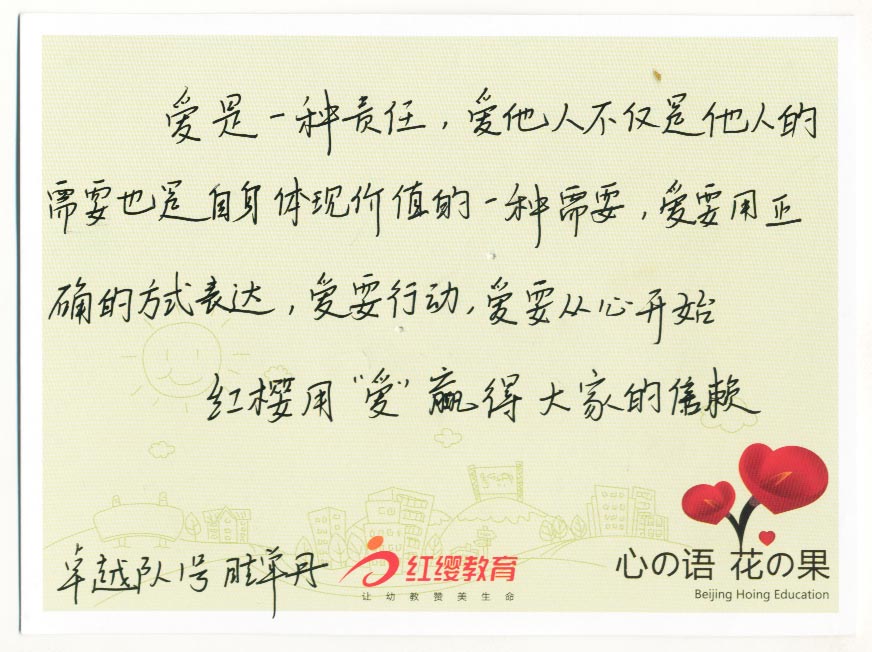 爱是一种责任，爱他人不仅是他人的
需要也是自身体现价值的一种需要，爱要用正
确的方式表达，爱要行动，爱要从心开始
红樱用“爱”赢得大家的信赖
卓越队1号 单丹
红缨教育
让幼教赞美生命
心の语 花の果
Beijing Hoing Education